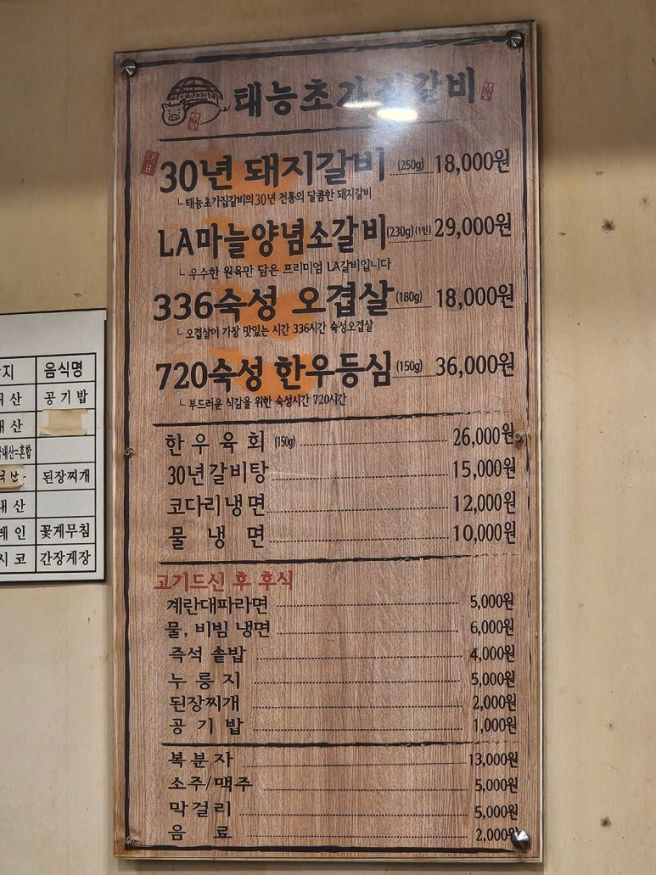 태능초가집갈비
30년 돼지갈비 (250g) 18,000원
└ 태능초가집갈비의 30년 전통의 달콤한 돼지갈비
LA마늘양념소갈비 (230g) (1인) 29,000원
└ 우수한 원육만 담은 프리미엄 LA갈비입니다
336숙성 오겹살 (180g) 18,000원
└ 오겹살이 가장 맛있는 시간 336시간 숙성오겹살
720숙성 한우등심 (150g) 36,000원
└ 부드러운 식감을 위한 숙성시간 720시간
한우육회 (150g) 26,000원
30년갈비탕 15,000원
코다리냉면 12,000원
물냉면 10,000원
고기드신 후 후식
계란대파라면 5,000원
물, 비빔 냉면 6,000원
즉석 솥밥 4,000원
누룽지 5,000원
된장찌개 2,000원
공기밥 1,000원
복분자 13,000원
소주/맥주 5,000원
막걸리 5,000원
음료 2,000원
지 음식명
산 공기밥
산
내산=혼합
산 된장찌개
산
인 꽃게무침
시코 간장게장